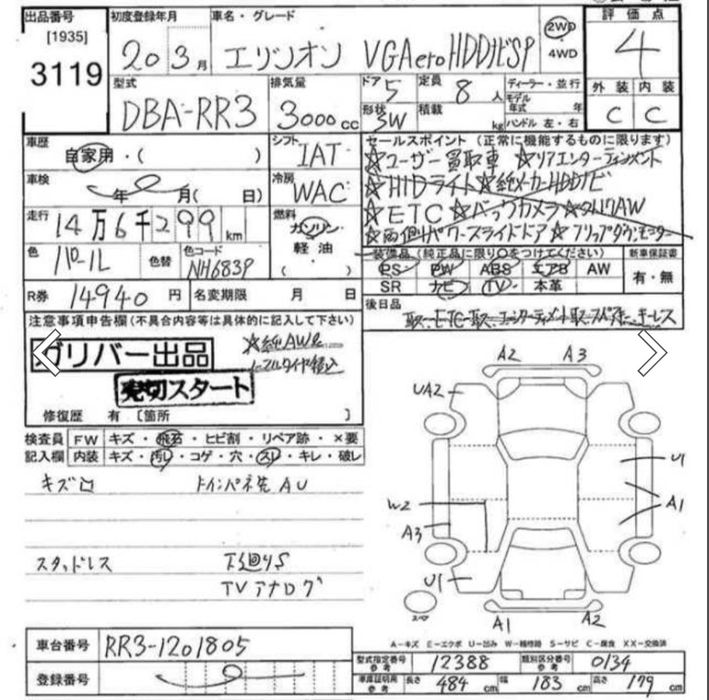 出品番号 初度登録年月 車名・グレード 2WD 評価点
[1935] 20 3月 エリシオン VGAeroHDDナビSP 4WD 4
3119
型式 排気量 ドア 5 定員 8人 ディーラー・並行 外装 内装
DBA-RR3 3000cc 形状 SW 積載 kg モデル年式 年 C C
ハンドル 左・右
車歴 シフト セールスポイント (正常に機能するものに限ります)
自家用・( ) IAT ☆ユーザー買取車 ☆リアエンターテインメント
車検 年 月( 日) 冷房 WAC ☆HIDライト☆純メーカーHDDナビ
走行 燃料 ☆ETC☆バックカメラ
14万6千299km ガソリン ☆両側パワースライドドア☆フリップダウンモニター
色 色替 色コード 軽油・ 装備品 (純正品に限り○をつけてください) 新車保証書
パール NH683P PS PW ABS エアB AW 有・無
R券 14940円 名変期限 月 日 SR ナビ TV 本革
注意事項申告欄(不具合内容等は具体的に記入して下さい) 後日品
ガリバー出品 ☆純AW&
ノーマルタイヤ積込
売切スタート
修復歴 有 [箇所 ]
検査員 FW キズ・飛石・ヒビ割・リペア跡・×要
記入欄 内装 キズ・汚レ・コゲ・穴・スレ・キレ・破レ
キズ凹 AU
スタッドレス 下廻りS
TVアナログ
A2 A3
UA2
U1
W2
A1
A3
U1
A1 A2
A-キズ E-エクボ U-凹み W-補修跡 S-サビ C-腐食 XX-交換済
車台番号 RR3-1201805
型式指定番号 参考 12388 類別区分番号 参考 0134
登録番号
車庫証明用 参考 長さ 484cm 幅 183cm 高さ 179cm